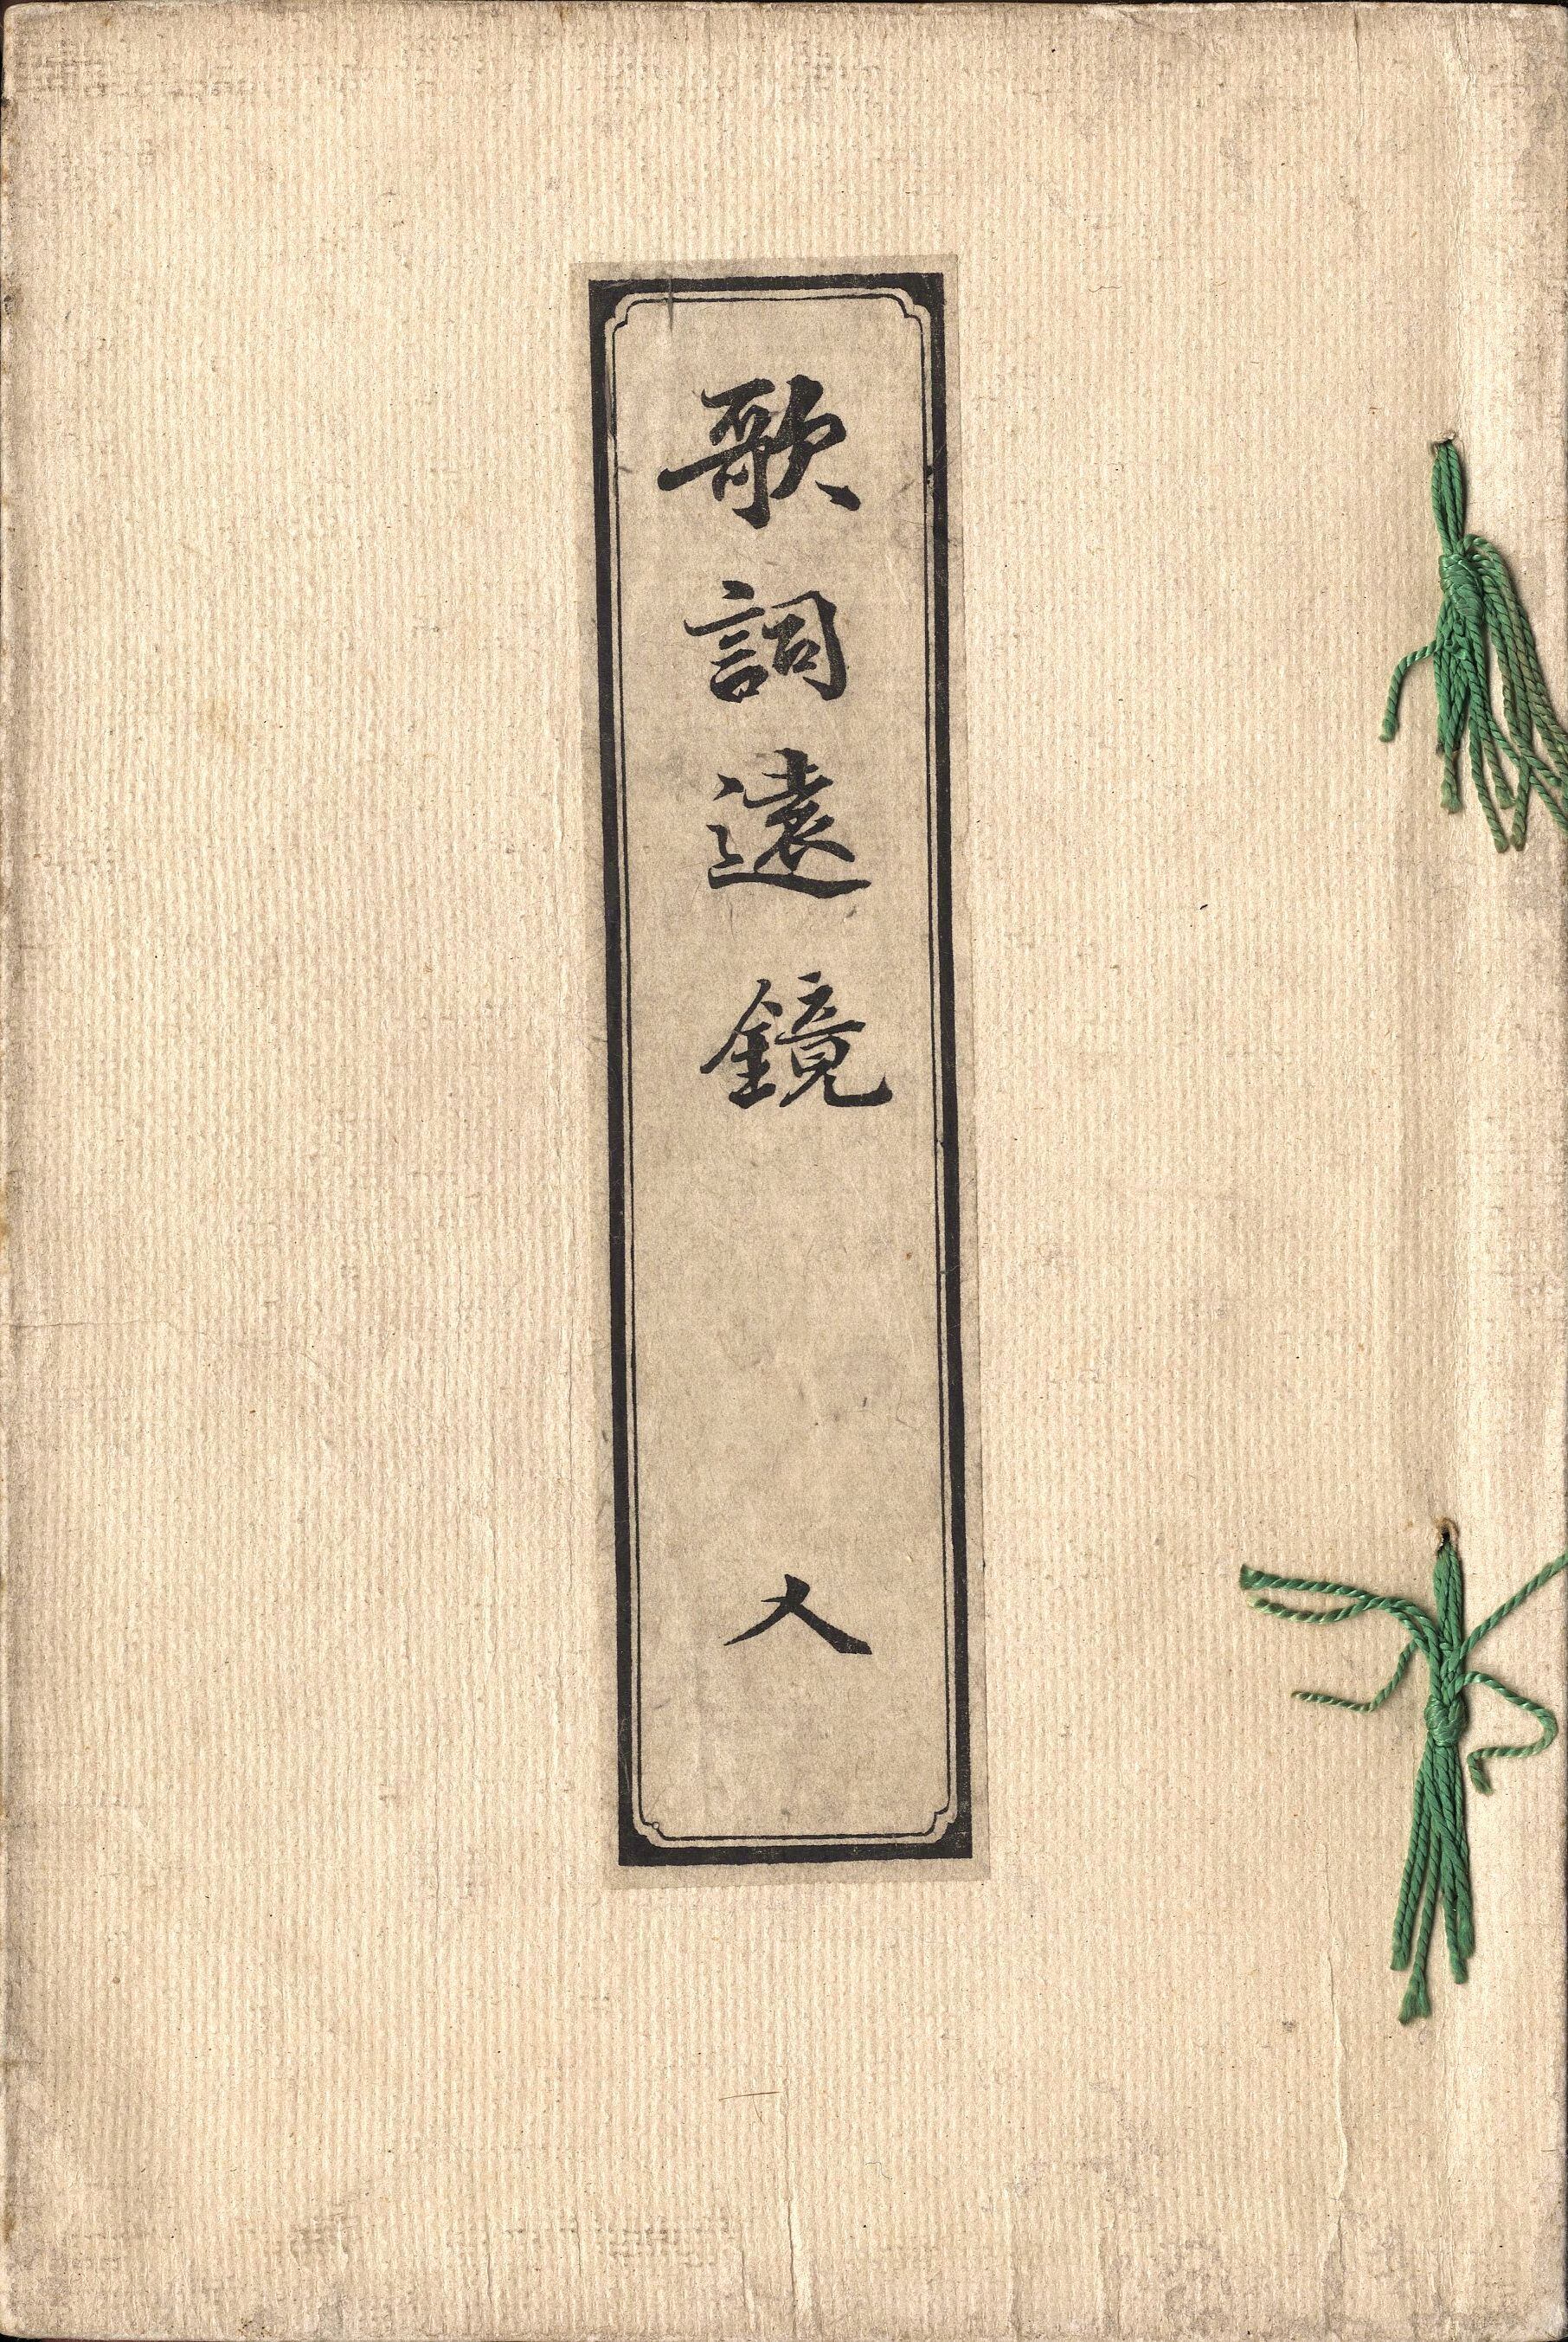 歌詞遠鏡 人